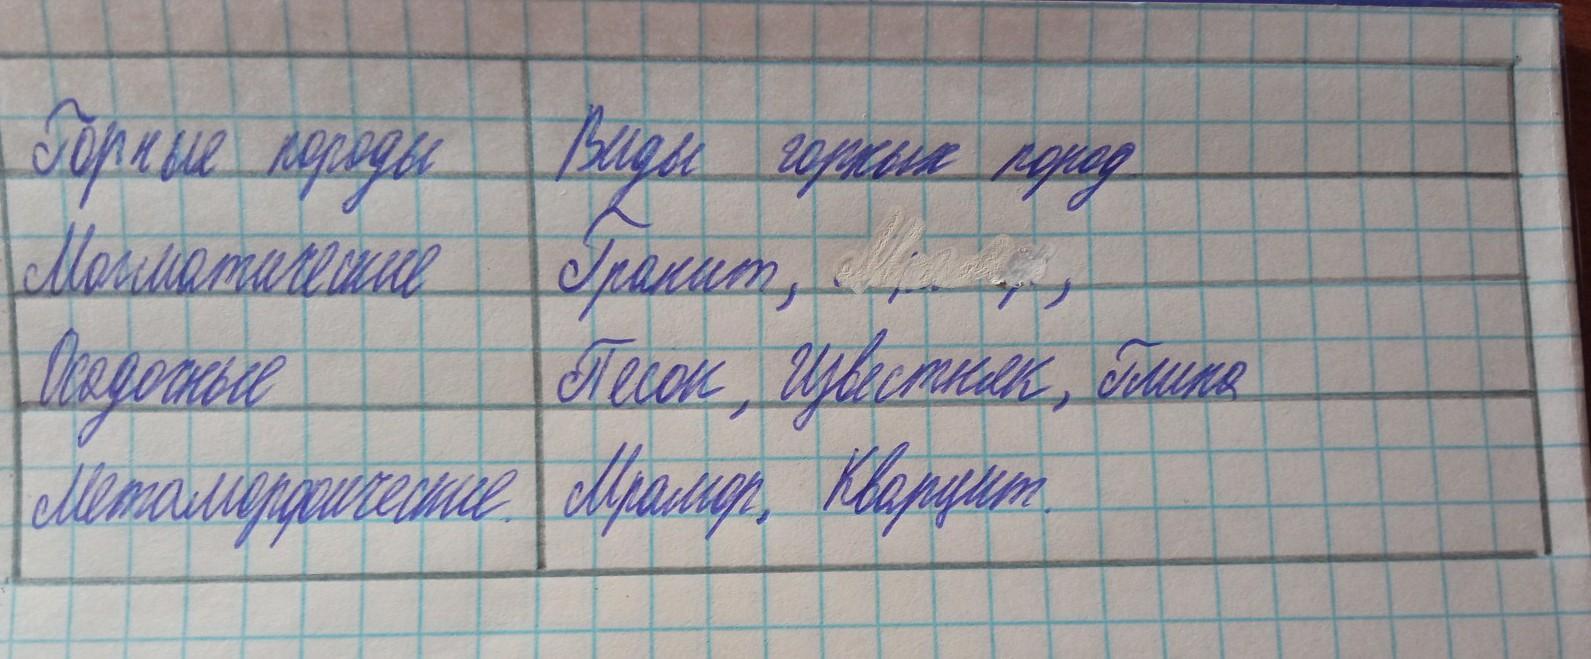 Горные породы Виды горных пород
Магматические Гранит, ,
Осадочные Песок, Известкяк, Глина
Метаморфические. Мрамор, Кварцит.